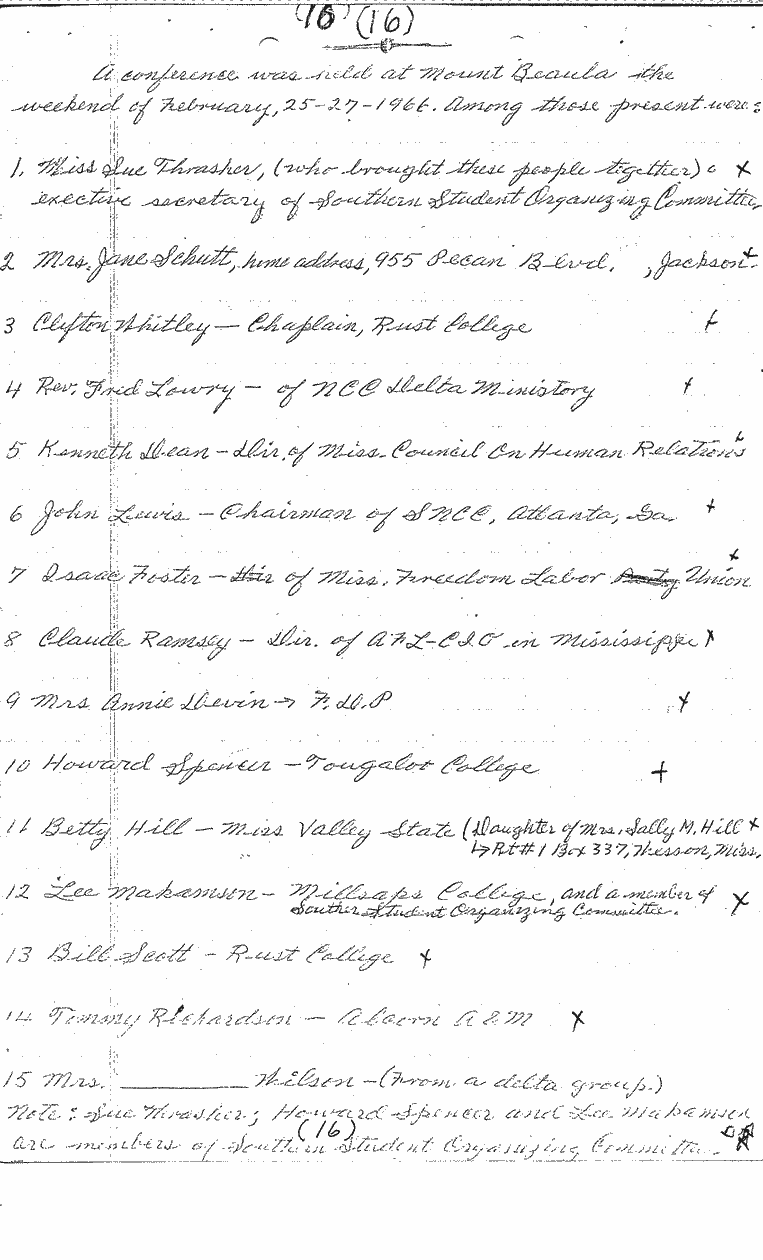 (16) (16)
A conference was held at Mount Beaula the
weekend of February, 25-27-1966. Among those present were:
1. Miss Sue Thrasher, (who brought these people together) x
exective secretary of Southern Student Organizing Committee,
2 Mrs. Jane Schutt, home address, 955 Pecan Blvd. , Jackson. +
3 Clifton Whitley — Chaplain, Rust College +
4 Rev. Fred Lowry — of NCC Delta Ministory +
5 Kenneth Dean — Dir. of Miss. Council On Human Relations +
6 John Lewis — Chairman of SNCC, Atlanta, Ga. +
7 Isaac Foster — Dir of Miss. Freedom Labor Party Union +
8 Claude Ramsey — Dir. of AFL-CIO in Mississippi x
9 Mrs. Annie Devin → F.D.P x
10 Howard Spencer — Tougalot College +
11 Betty Hill — Miss Valley State (Daughter of Mrs. Sally M. Hill x
↳ Rt # 1 Box 337, Miss.
12 Lee Makamson — Millsaps College, and a member of x
Souther Student Organizing Committee.
13 Bill Scott — Rust College x
14 Tommy Richardson — Alcorn A & M x
15 Mrs. ________ Wilson — (From a delta group.)
Note: Sue Thrasher; Howard Spencer and Lee Makamson
(16)
are members of Southern Student Organizing Committee.